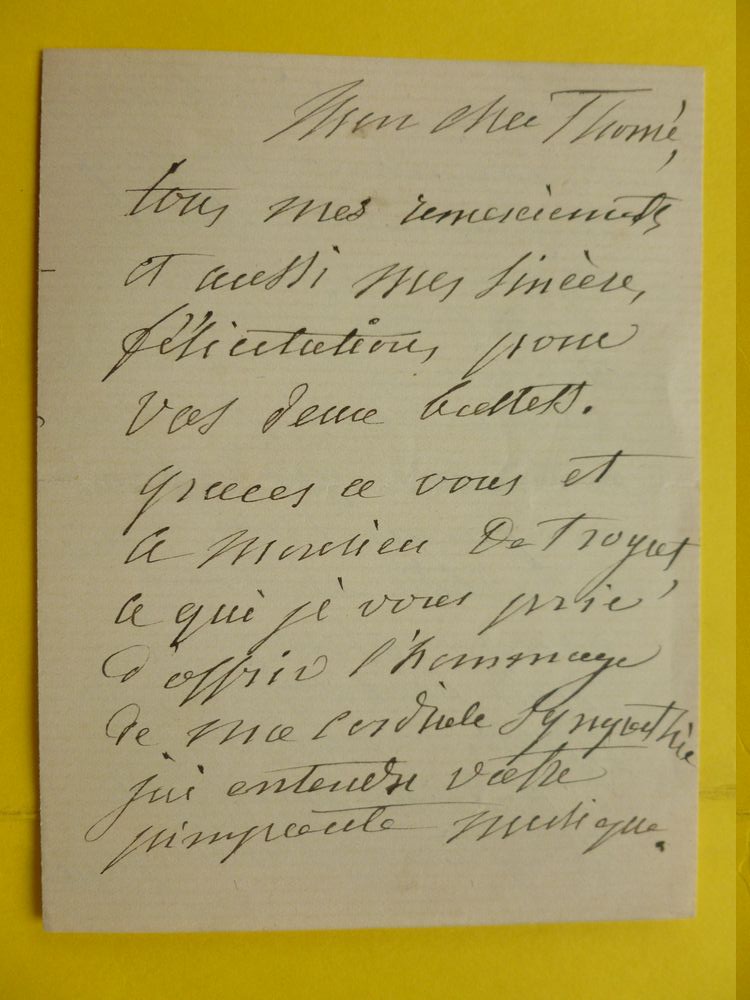 Mon cher Thomé,
tous mes remerciements
et aussi mes sincères
félicitations pour
vos deux ballets.
graces a vous et
a Monsieur De Troyat
a qui je vous prie
d'offrir l'hommage
de ma cordiale Sympathie
j'ai entendu votre
pimpante musique.